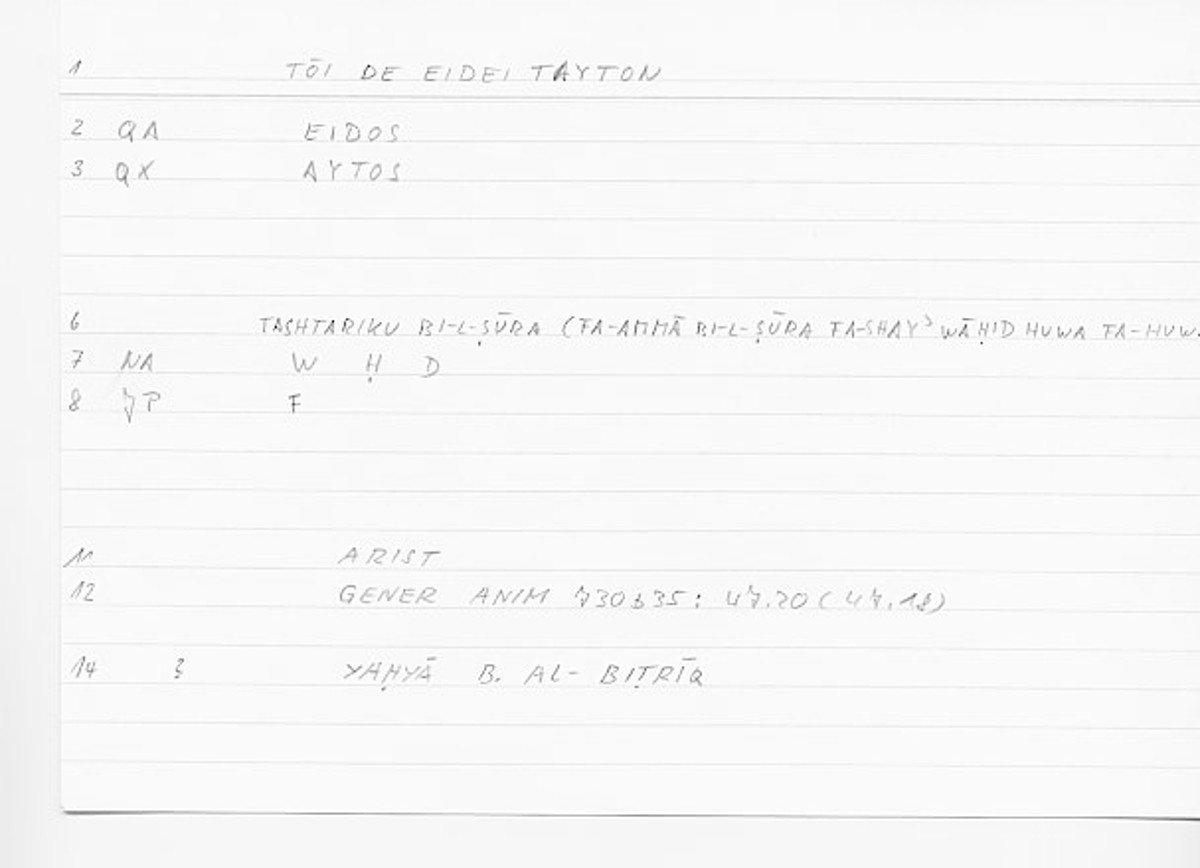 1 TŌI DE EIDEI TAYTON
2 QA EIDOS
3 QX AYTOS
6 TASHTARIKU BI-L-ṢŪRA (FA-AMMĀ BI-L-ṢŪRA FA-SHAYʾ WĀḤID HUWA FA-HUW
7 NA W Ḥ D
8 7P F
11 ARIST
12 GENER ANIM 730b35: 47.20 (47.18)
14 YAḤYĀ B. AL-BIṬRĪQ